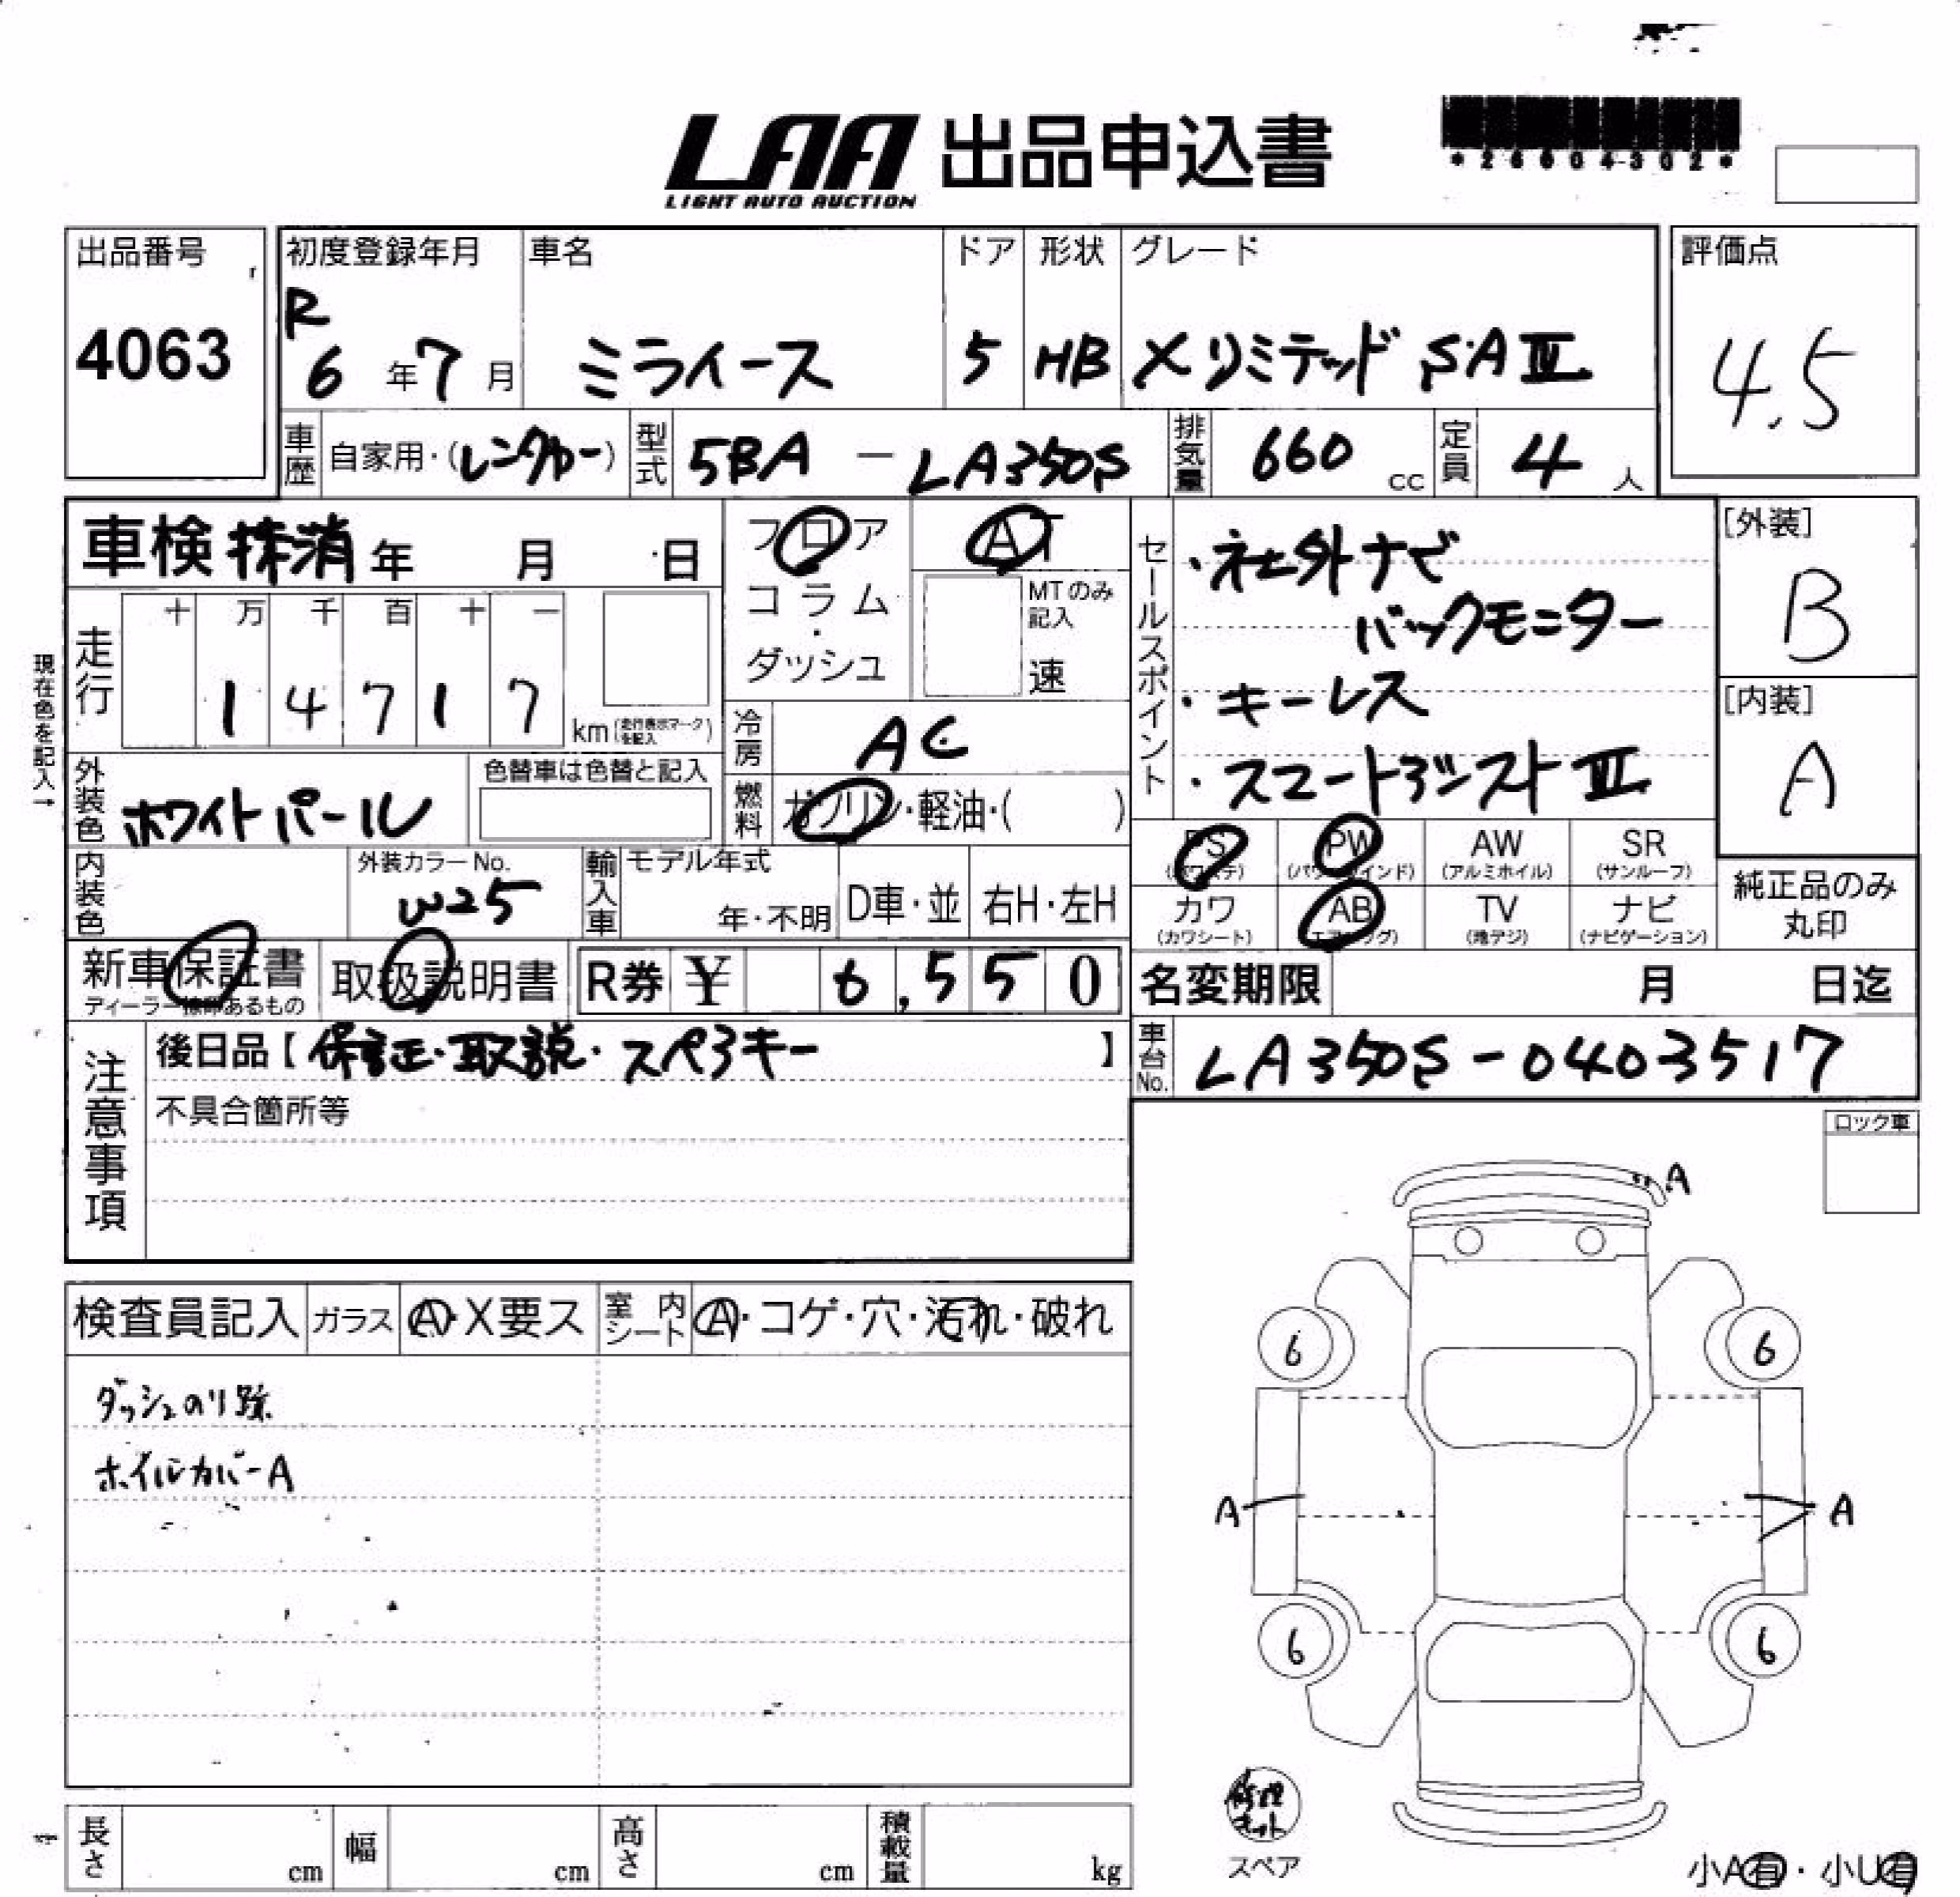 LAA 出品申込書
LIGHT AUTO AUCTION
*26604302*
出品番号
4063
初度登録年月
R
6年7月
車名
ミライース
ドア
5
形状
HB
グレード
Xリミテッド SAⅢ
評価点
4.5
車歴 自家用・(レンタカー)
型式 5BA - LA350S
排気量 660 cc
定員 4 人
車検 抹消 年 月 日
フロア
コラム
・
ダッシュ
AT
MTのみ
記入
速
現在色を記入→
走行
十 万 千 百 十 一
1 4 7 1 7
km(走行表示マークを記入)
冷房 AC
燃料 ガソリン・軽油・( )
外装色 ホワイトパール
色替車は色替と記入
セールスポイント
・社外ナビ
バックモニター
・キーレス
・スマートアシストⅢ
[外装]
B
[内装]
A
内装色
外装カラーNo.
W25
輸入車
モデル年式
年・不明
D車・並
右H・左H
PS
(パワステ)
PW
(パワーウインド)
AW
(アルミホイル)
SR
(サンルーフ)
カワ
(カワシート)
AB
(エアバッグ)
TV
(地デジ)
ナビ
(ナビゲーション)
純正品のみ
丸印
新車保証書
ディーラー捺印あるもの
取扱説明書
R券 ¥ 6,550
名変期限 月 日迄
注意事項
後日品【保証・取説・スペアキー】
不具合箇所等
車台No. LA350S-0403517
ロック車
検査員記入
ガラス A・X要ス
室内シート A・コゲ・穴・汚れ・破れ
ダッシュのり跡
ホイルカバーA
A
6
6
A
A
6
6
修理キット
スペア
小A有・小U有
長さ cm
幅 cm
高さ cm
積載量 kg